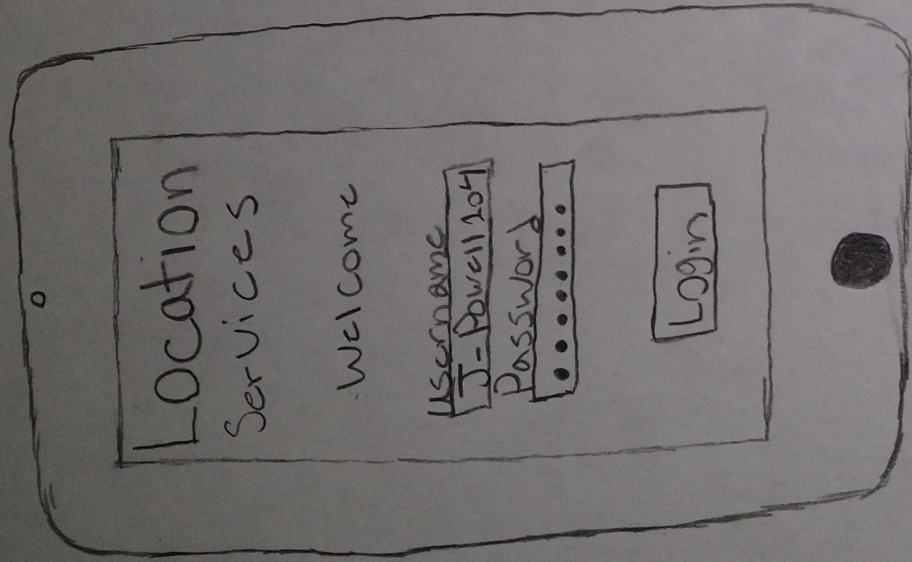 Location
Services
Welcome
Username
J-Powell204
Password
••••••••
Login